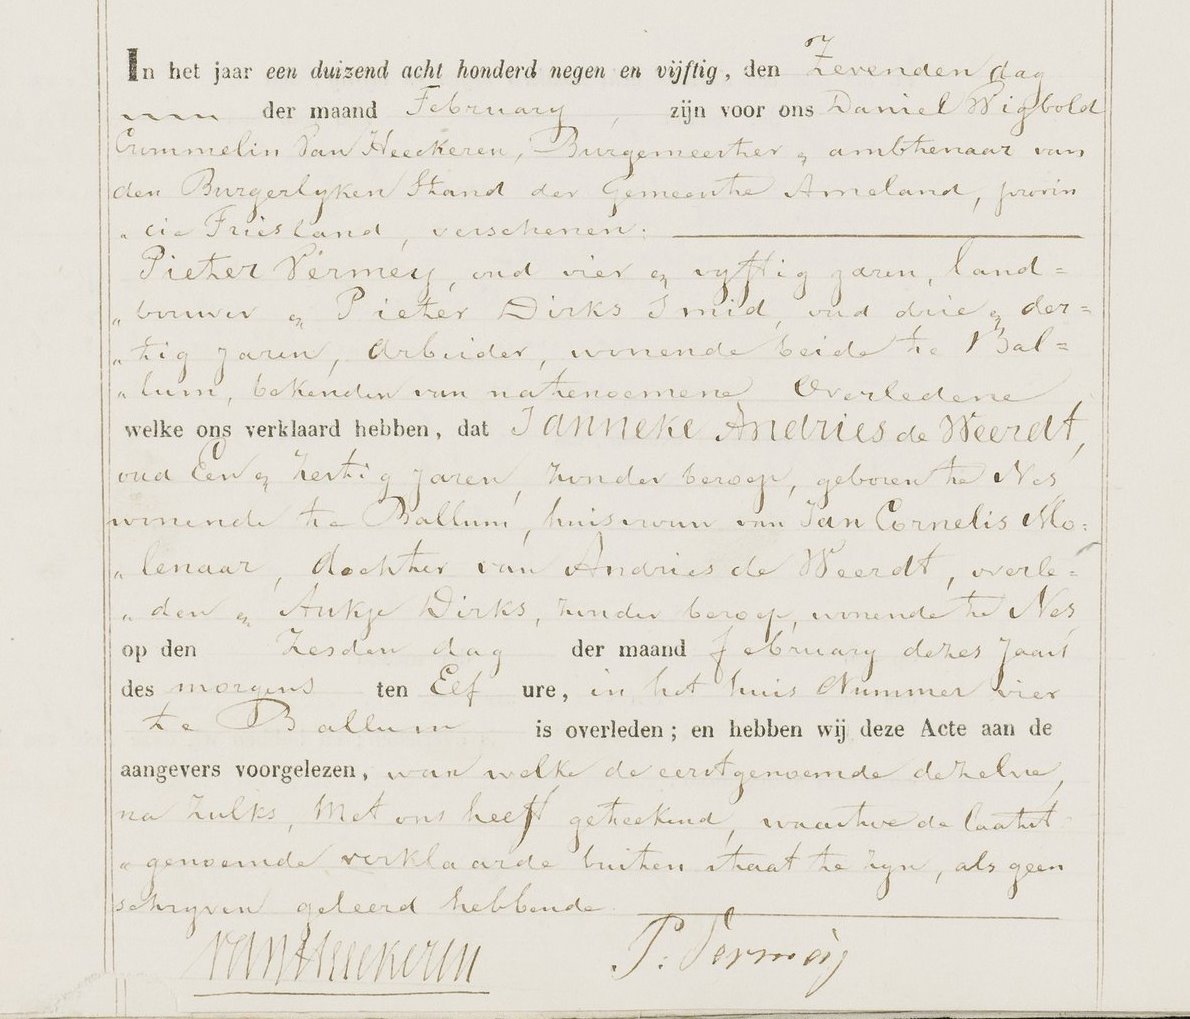 In het jaar een duizend acht honderd negen en vijftig, den Zevenden dag
der maand February, zijn voor ons Daniel Wigbold
Crommelin Van Heeckeren, Burgemeester & ambtenaar van
den Burgerlyken Stand der Gemeente Ameland, provin
„ cie Friesland, verschenen:
Pieter Vermey, oud vier & vyftig jaren, land=
„ bouwer & Pieter Dirks Smid, oud drie & der=
„ tig jaren, Arbeider, wonende beide te Bal=
„ lum, bekenden van natenoemene Overledene
welke ons verklaard hebben, dat Janneke Andries de Weerdt,
oud Een & zestig jaren, zonder beroep, geboren te Nes
wonende te Ballum, huisvrouw van Jan Cornelis Mo=
„ lenaar, dochter van Andries de Weerdt, overle=
„ den & Aukje Dirks, zonder beroep, wonende te Nes
op den Zesden dag der maand february dezes jaars
des morgens ten Elf ure, in het huis Nummer vier
te Ballum is overleden; en hebben wij deze Acte aan de
aangevers voorgelezen, van welke de eerstgenoemde dezelve,
na zulks, Met ons heeft geteekend, waartoe de laatst
„ genoemde verklaarde buiten staat te zyn, als geen
schryven geleerd hebbende.
van Heeckeren P. Vermeij